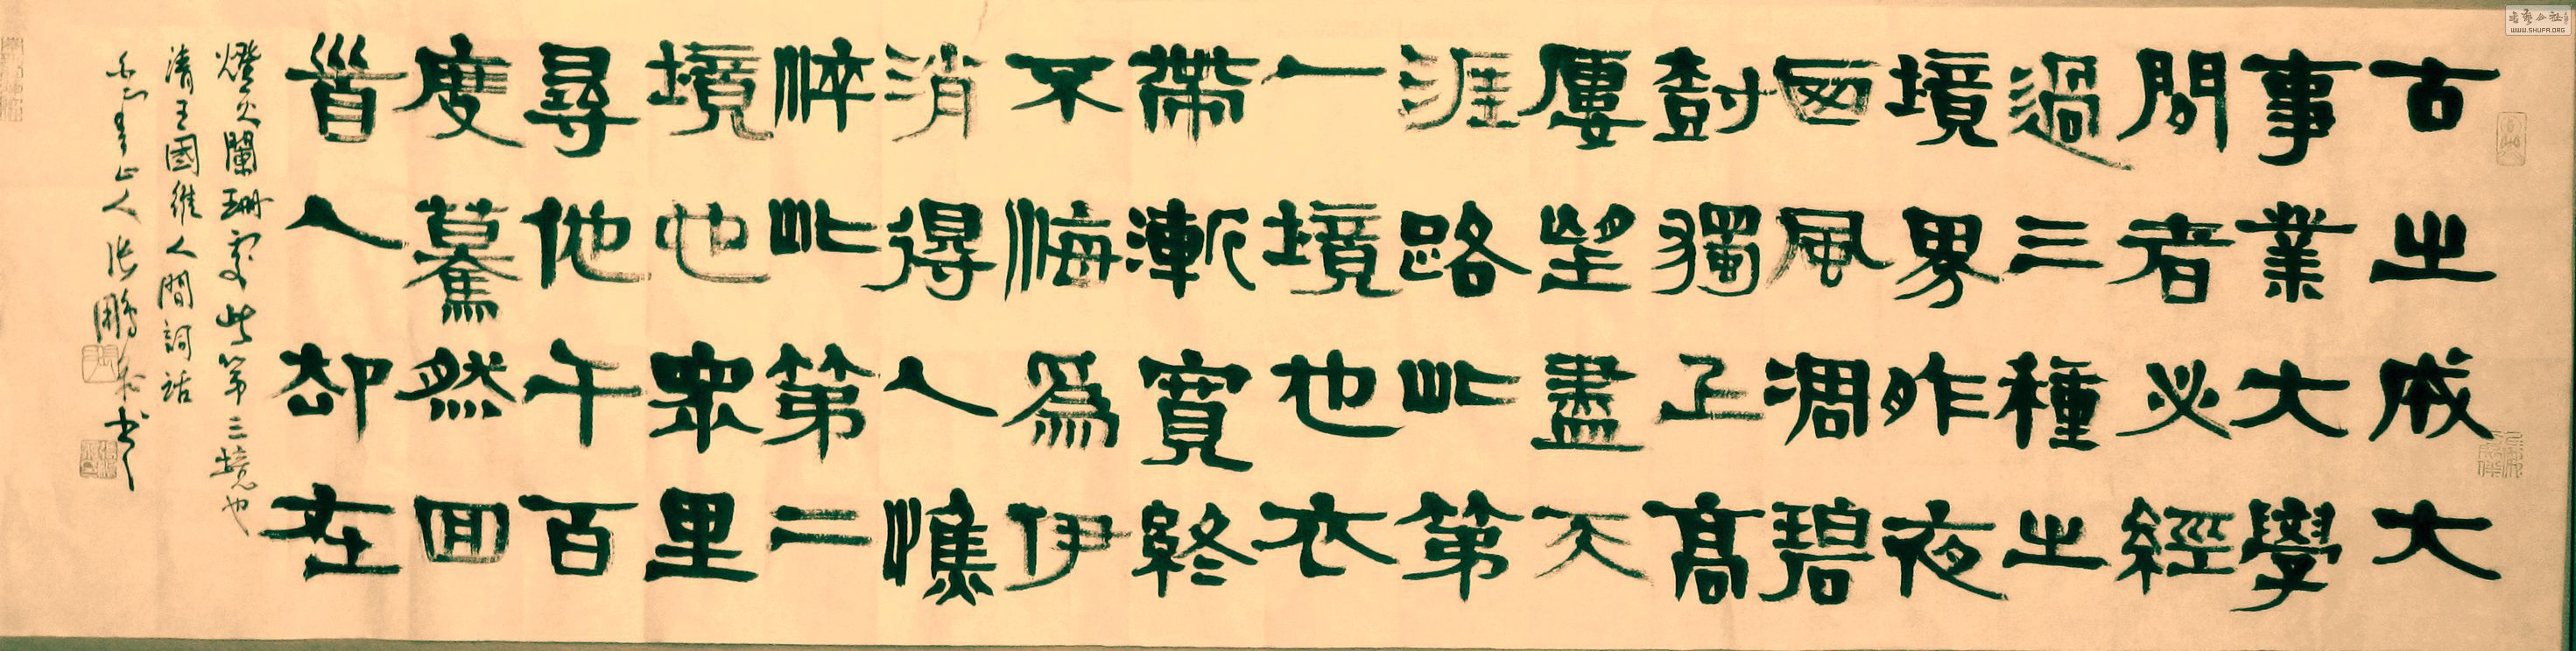 古之成大
事業大學
問者必經
過三種之
境界昨夜
西風凋碧
尌獨上高
廔望盡天
涯路此第
一境也衣
帶漸寬終
不悔爲伊
消得人憔
悴此第二
境也眾里
尋他千百
度驀然回
首人卻在
燈火闌珊處此第三境也
清王國維人間詞話
山人張鵬書
WWW.SHUFA.ORG